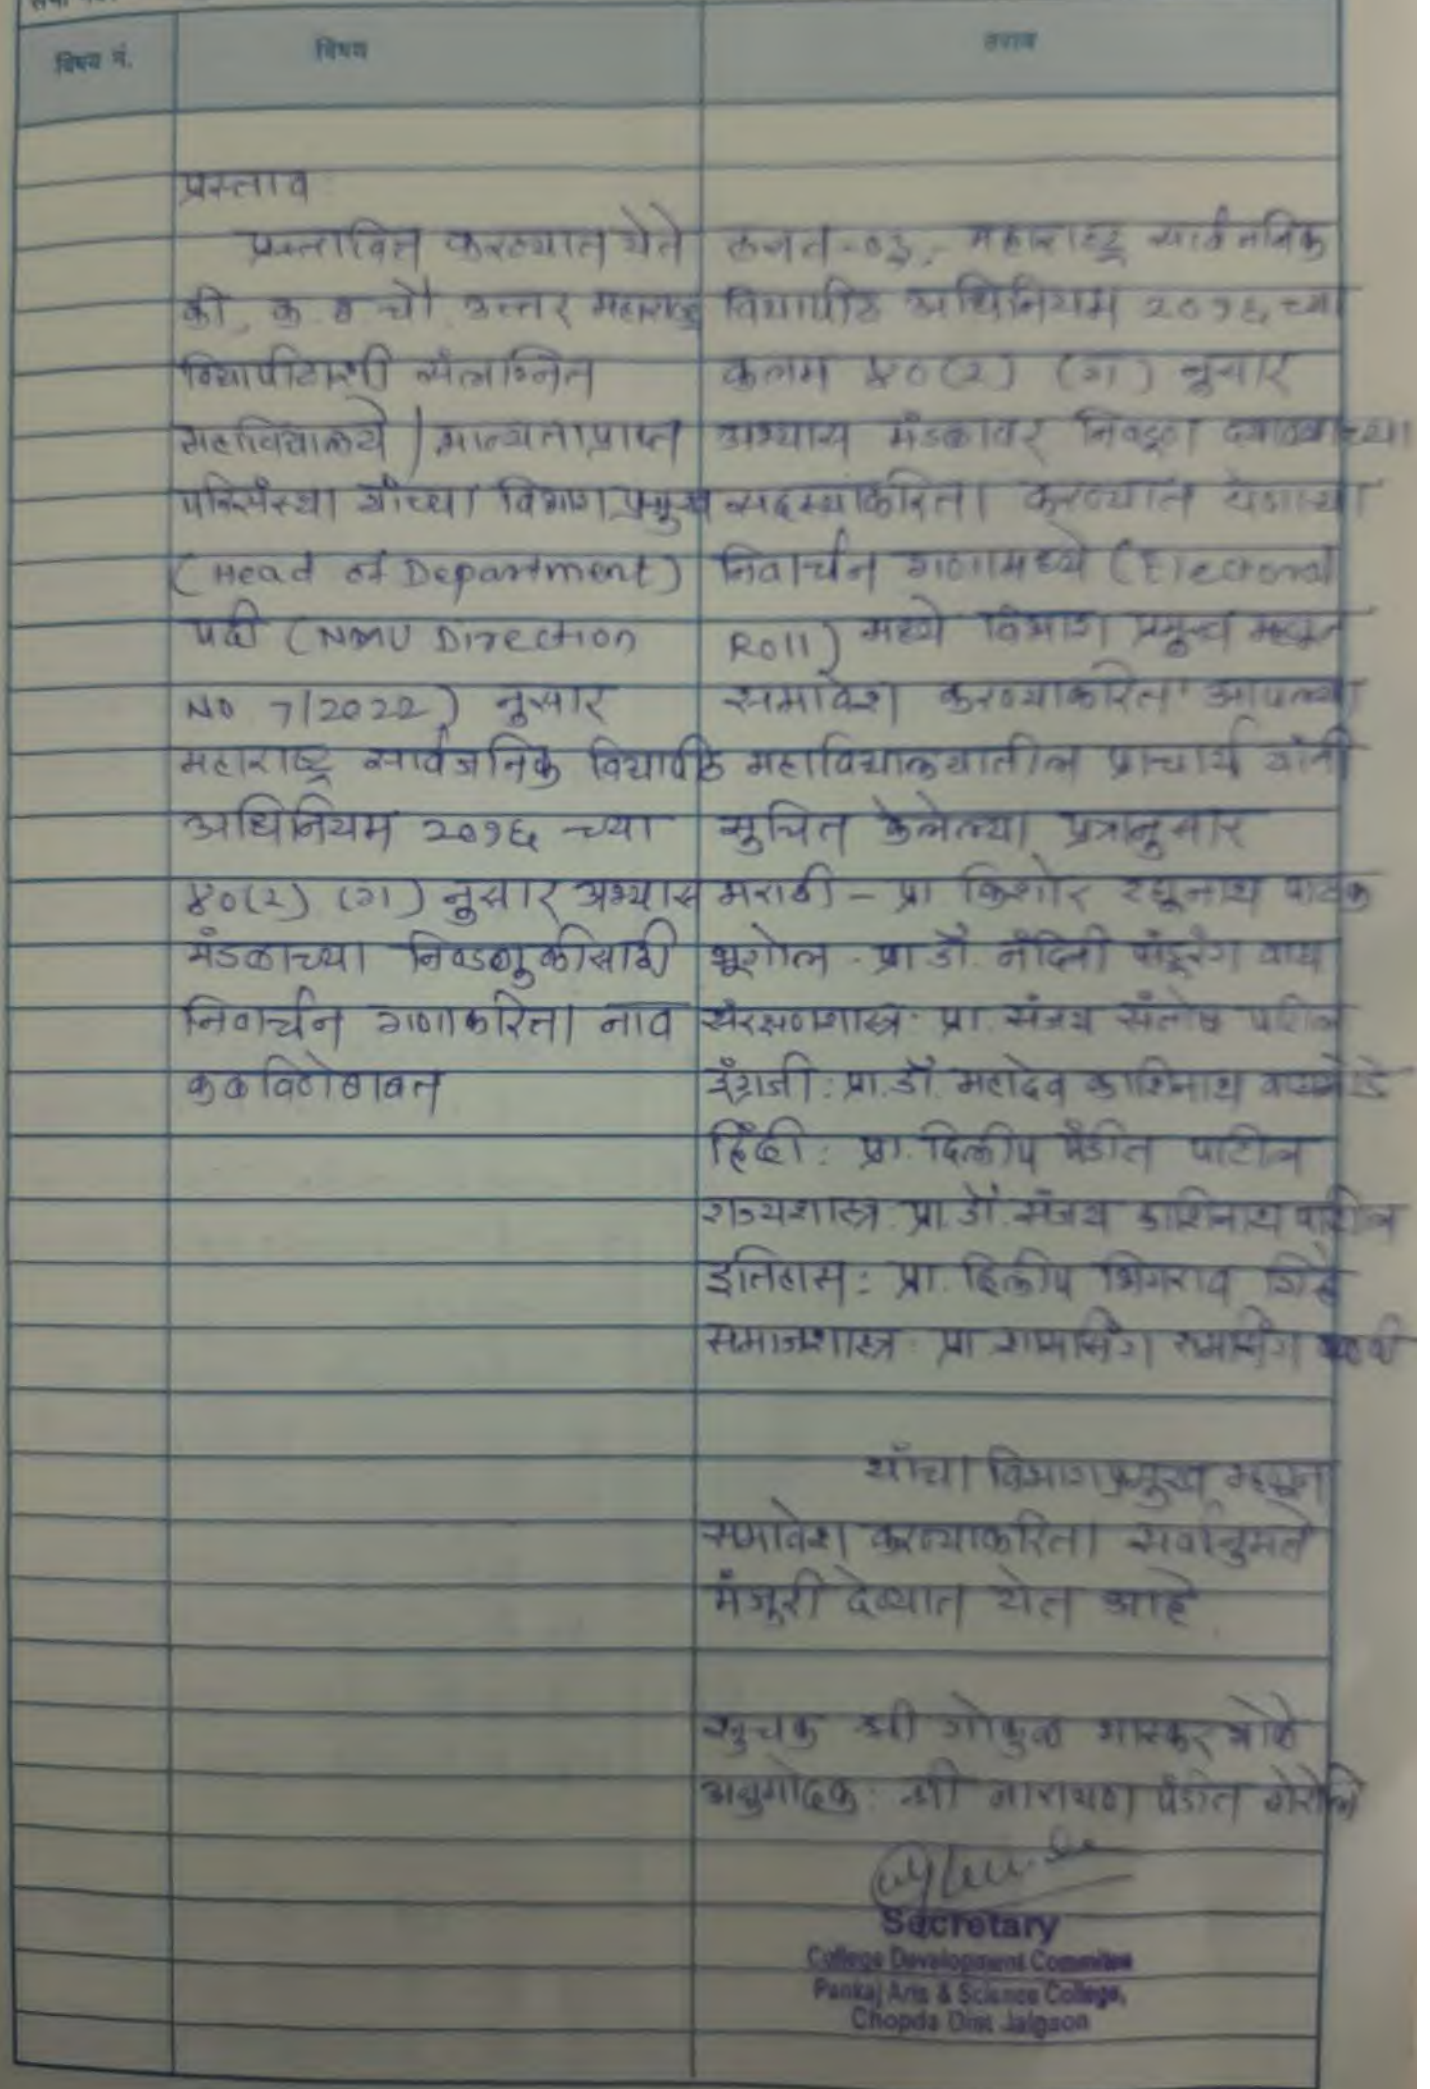 विषय नं.
विषय
ठराव
प्रस्ताव
प्रस्तावित करण्यात येते
की, क. ब. चौ. उत्तर महाराष्ट्र
विद्यापीठाशी संलग्नित
महाविद्यालये / मान्यताप्राप्त
परिसंस्था यांच्या विभाग प्रमुख
(Head of Department)
पदी (NMU Direction
No 7/2022) नुसार
महाराष्ट्र सार्वजनिक विद्यापीठ
अधिनियम २०१६ च्या
४०(२) (ग) नुसार अभ्यास
मंडळाच्या निवडणुकीसाठी
निर्वाचन गणाकरिता नाव
कळविणेबाबत
ठराव-०३, महाराष्ट्र सार्वजनिक
विद्यापीठ अधिनियम २०१६ च्या
कलम ४०(२) (ग) नुसार
अभ्यास मंडळावर निवडून द्यावयाच्या
सदस्यांकरिता करण्यात येणाऱ्या
निर्वाचन गणामध्ये (Electoral
Roll) मध्ये विभाग प्रमुख म्हणून
समावेश करण्याकरिता आपल्या
महाविद्यालयातील प्राचार्य यांनी
सुचित केलेल्या पत्रानुसार
मराठी - प्रा किशोर रघुनाथ पाठक
भूगोल - प्रा. डॉ. नंदिनी पांडूरंग वाघ
संरक्षणशास्त्र - प्रा. संजय संतोष पाटील
इंग्रजी : प्रा. डॉ. महादेव काशिनाथ वाघमोडे
हिंदी : प्रा. दिलीप पंडीत पाटील
राज्यशास्त्र प्रा. डॉ. संजय काशिनाथ पाटील
इतिहास : प्रा. दिलीप भिमराव गिऱ्हे
समाजशास्त्र प्रा
यांचा विभागप्रमुख म्हणून
समावेश करण्याकरिता सर्वानुमते
मंजूरी देण्यात येत आहे.
सुचक श्री गोकुळ भास्कर भोळे
अनुमोदक : श्री नारायण पंडीत बोरोले
Secretary
College Development Committee
Pankaj Arts & Science College,
Chopda Dist Jalgaon